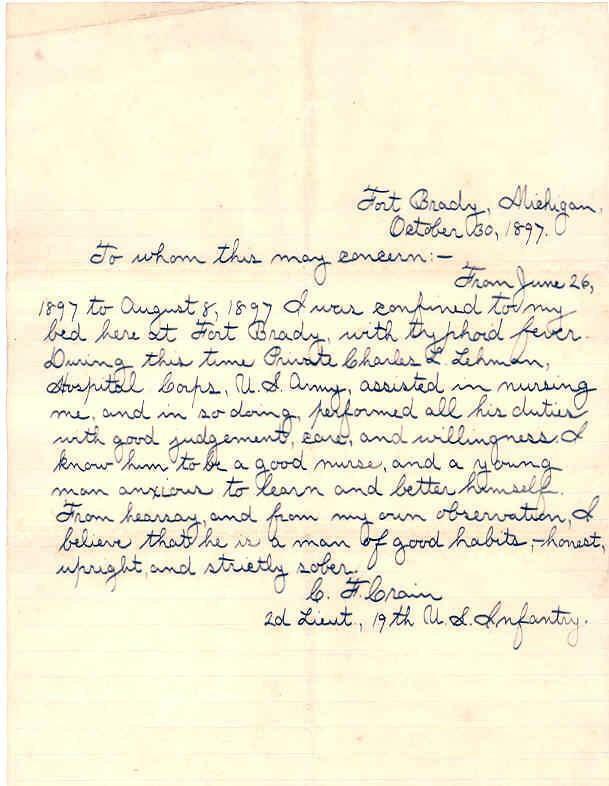 Fort Brady, Michigan,
October 30, 1897.
To whom this may concern:-
From June 26,
1897 to August 8, 1897 I was confined to my
bed here at Fort Brady, with typhoid fever.
During this time Private Charles L. Lehman,
Hospital Corps, U.S. Army, assisted in nursing
me, and in so doing, performed all his duties
with good judgement, care, and willingness. I
know him to be a good nurse, and a young
man anxious to learn and better himself.
From hearsay, and from my own observation, I
believe that he is a man of good habits,-honest,
upright, and strictly sober.
C. F. Crain
2d Lieut., 19th U.S. Infantry.